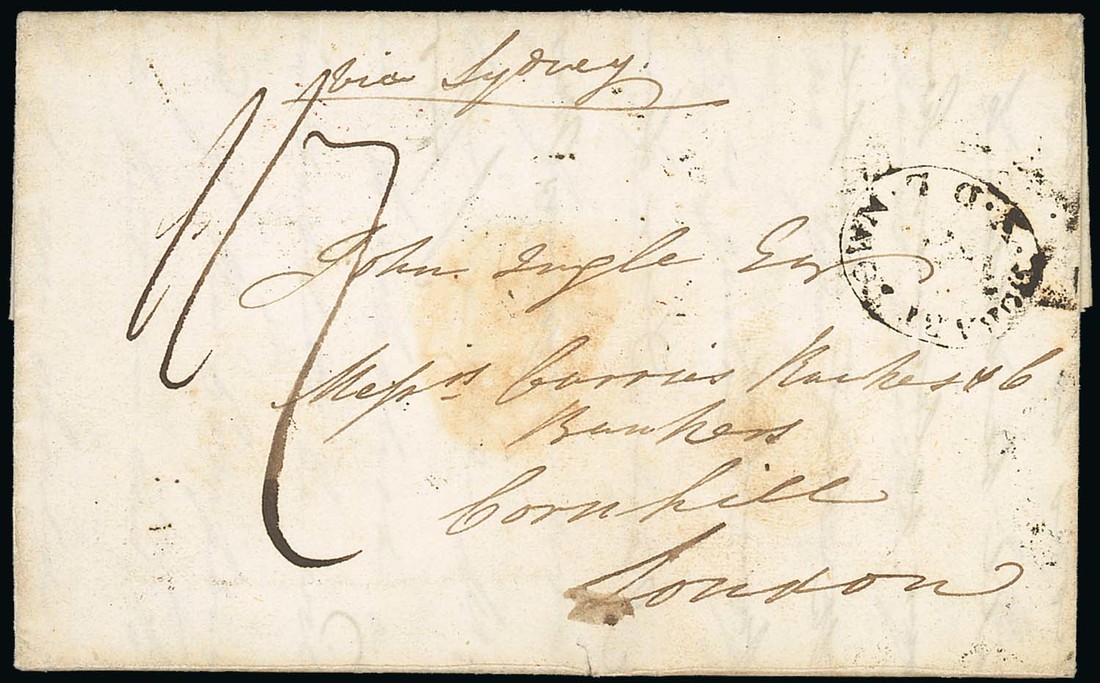 via Sydney.
John Ingle Esq
Messrs Curries Raikes & C
Bankers
Cornhill
London